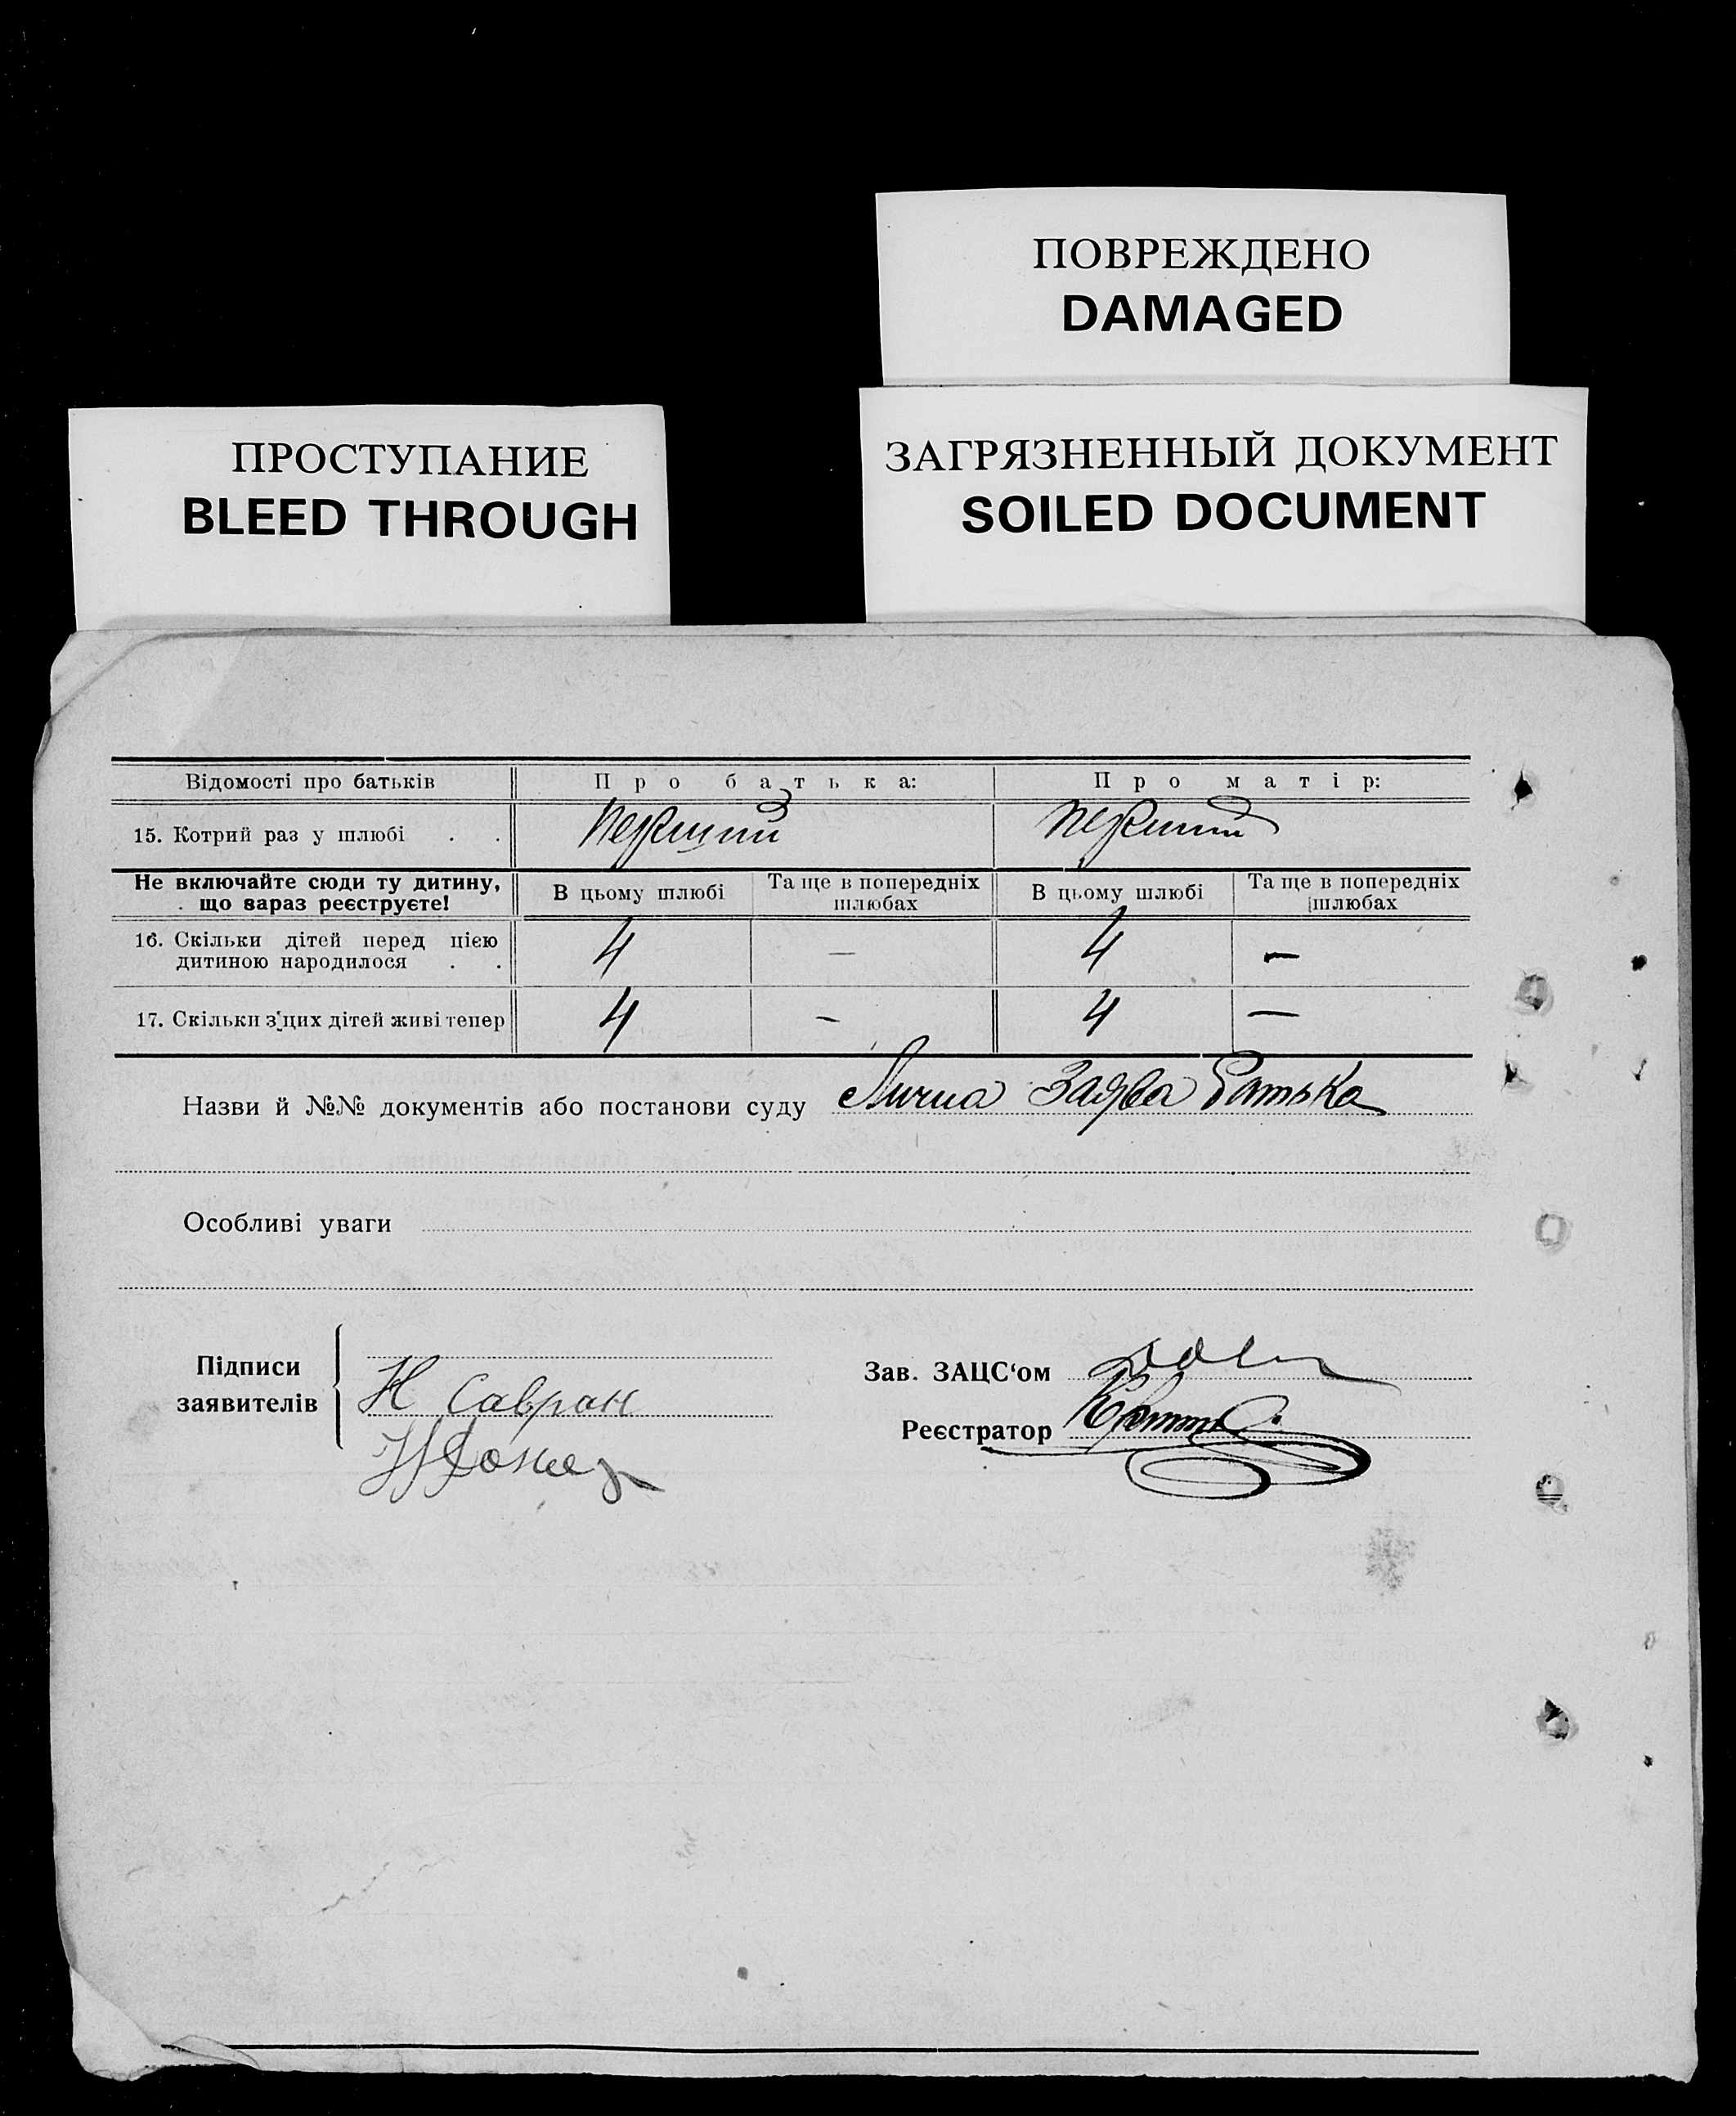 ПОВРЕЖДЕНО
DAMAGED
ПРОСТУПАНИЕ
BLEED THROUGH
ЗАГРЯЗНЕННЫЙ ДОКУМЕНТ
SOILED DOCUMENT
Відомості про батьків Про батька: Про матір:
15. Котрий раз у шлюбі . . перший перший
Не включайте сюди ту дитину, що вараз реєструєте! В цьому шлюбі Та ще в попередніх шлюбах В цьому шлюбі Та ще в попередніх шлюбах
16. Скільки дітей перед цією
дитиною народилося . . 4 — 4 —
17. Скільки з цих дітей живі тепер 4 — 4 —
Назви й №№ документів або постанови суду Лична Заява Батька
Особливі уваги
Підписи
заявителів
Н Савран
Зав. ЗАЦС‘ом
Реєстратор